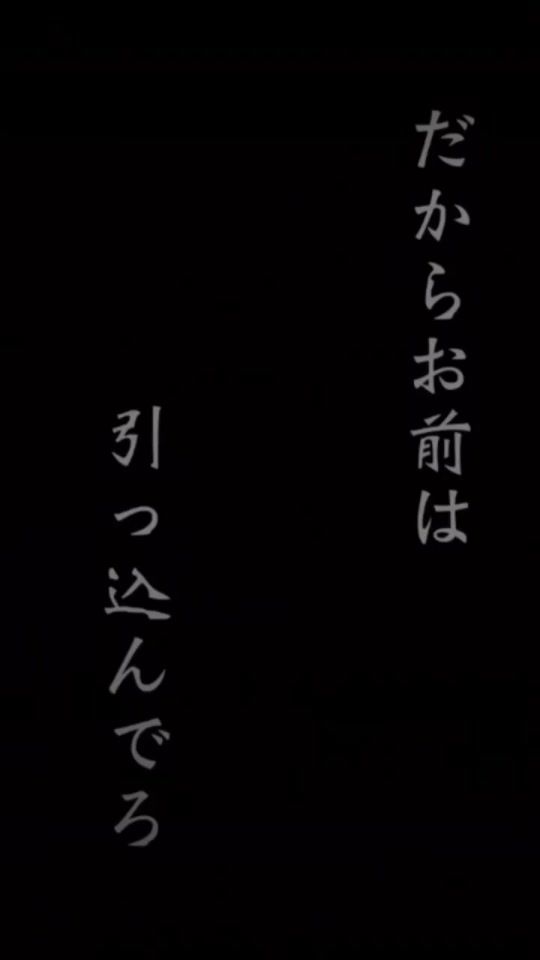 だからお前は
引っ込んでろ